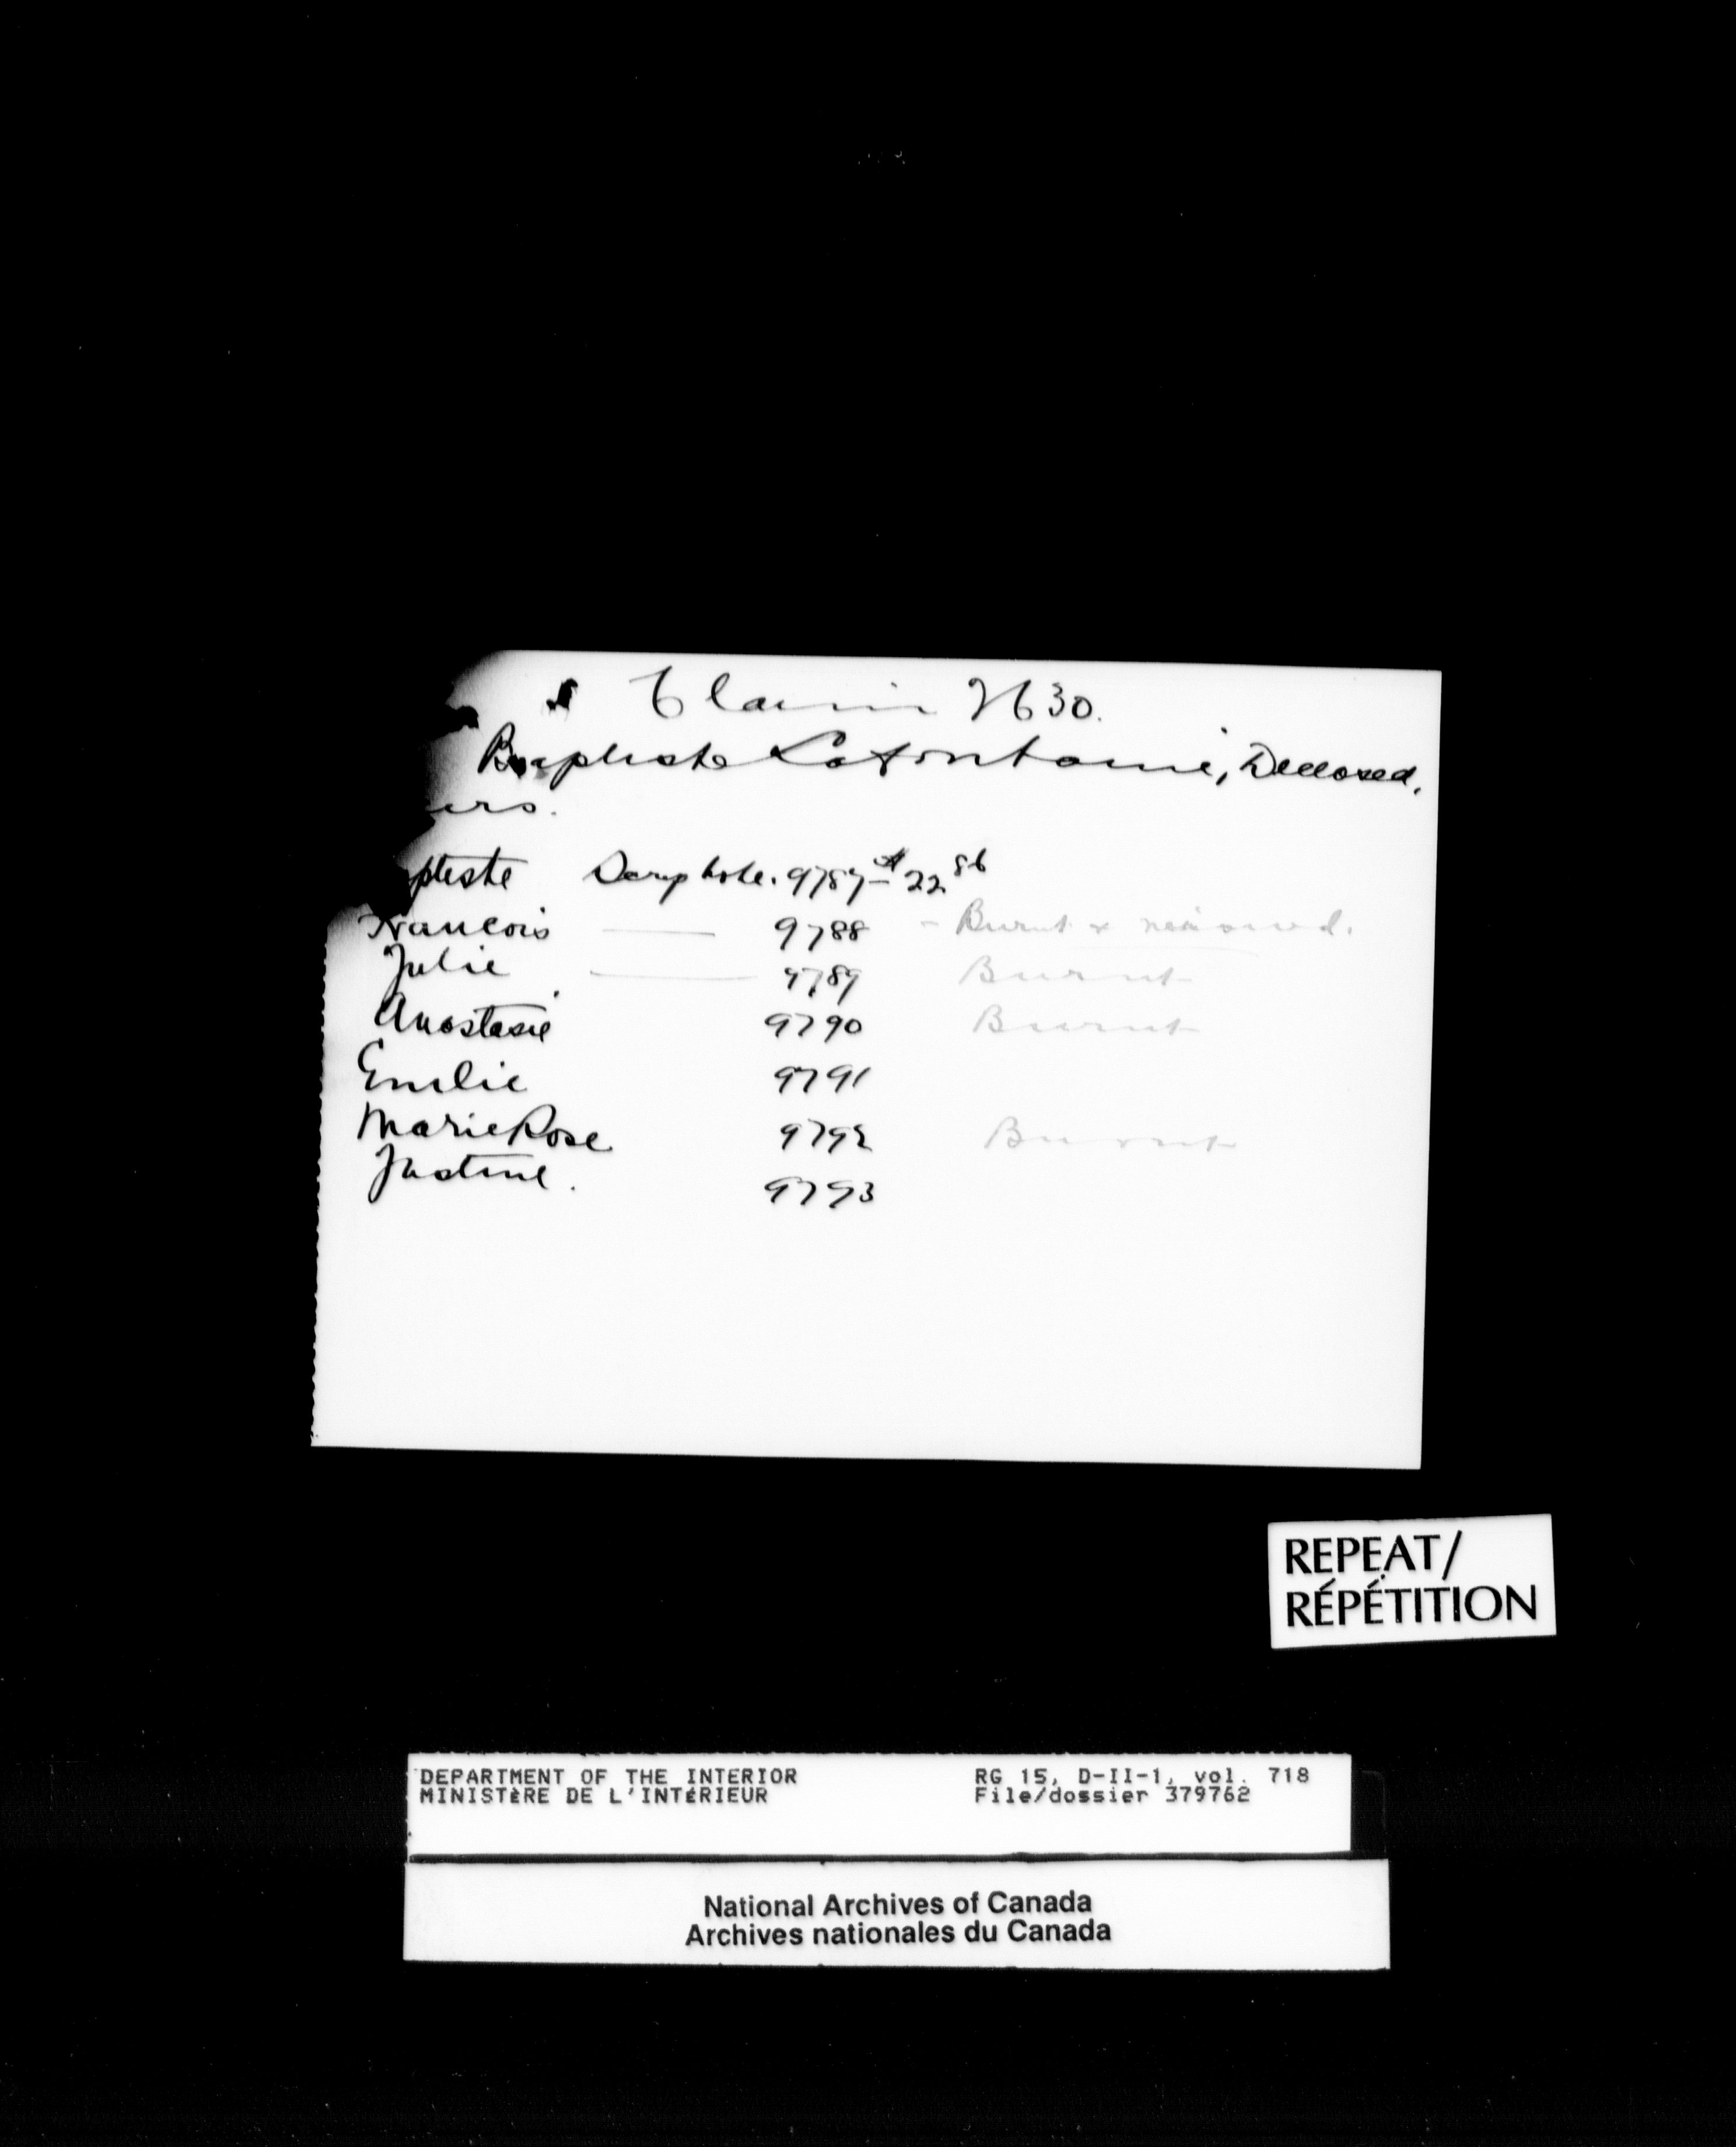 Claim 2630.
Baptiste Lafontaine, Deceased,
eirs.
ptiste Scrip note. 9787 - $22 86
Francois —— 9788 - Burnt & renewed.
Julie —— 9789 Burnt
Anastasie 9790 Burnt
Emilie 9791
Marie Rose 9792 Burnt
Justine. 9793
REPEAT/
RÉPÉTITION
DEPARTMENT OF THE INTERIOR RG 15, D-II-1, vol. 718
MINISTÈRE DE L'INTÉRIEUR File/dossier 379762
National Archives of Canada
Archives nationales du Canada